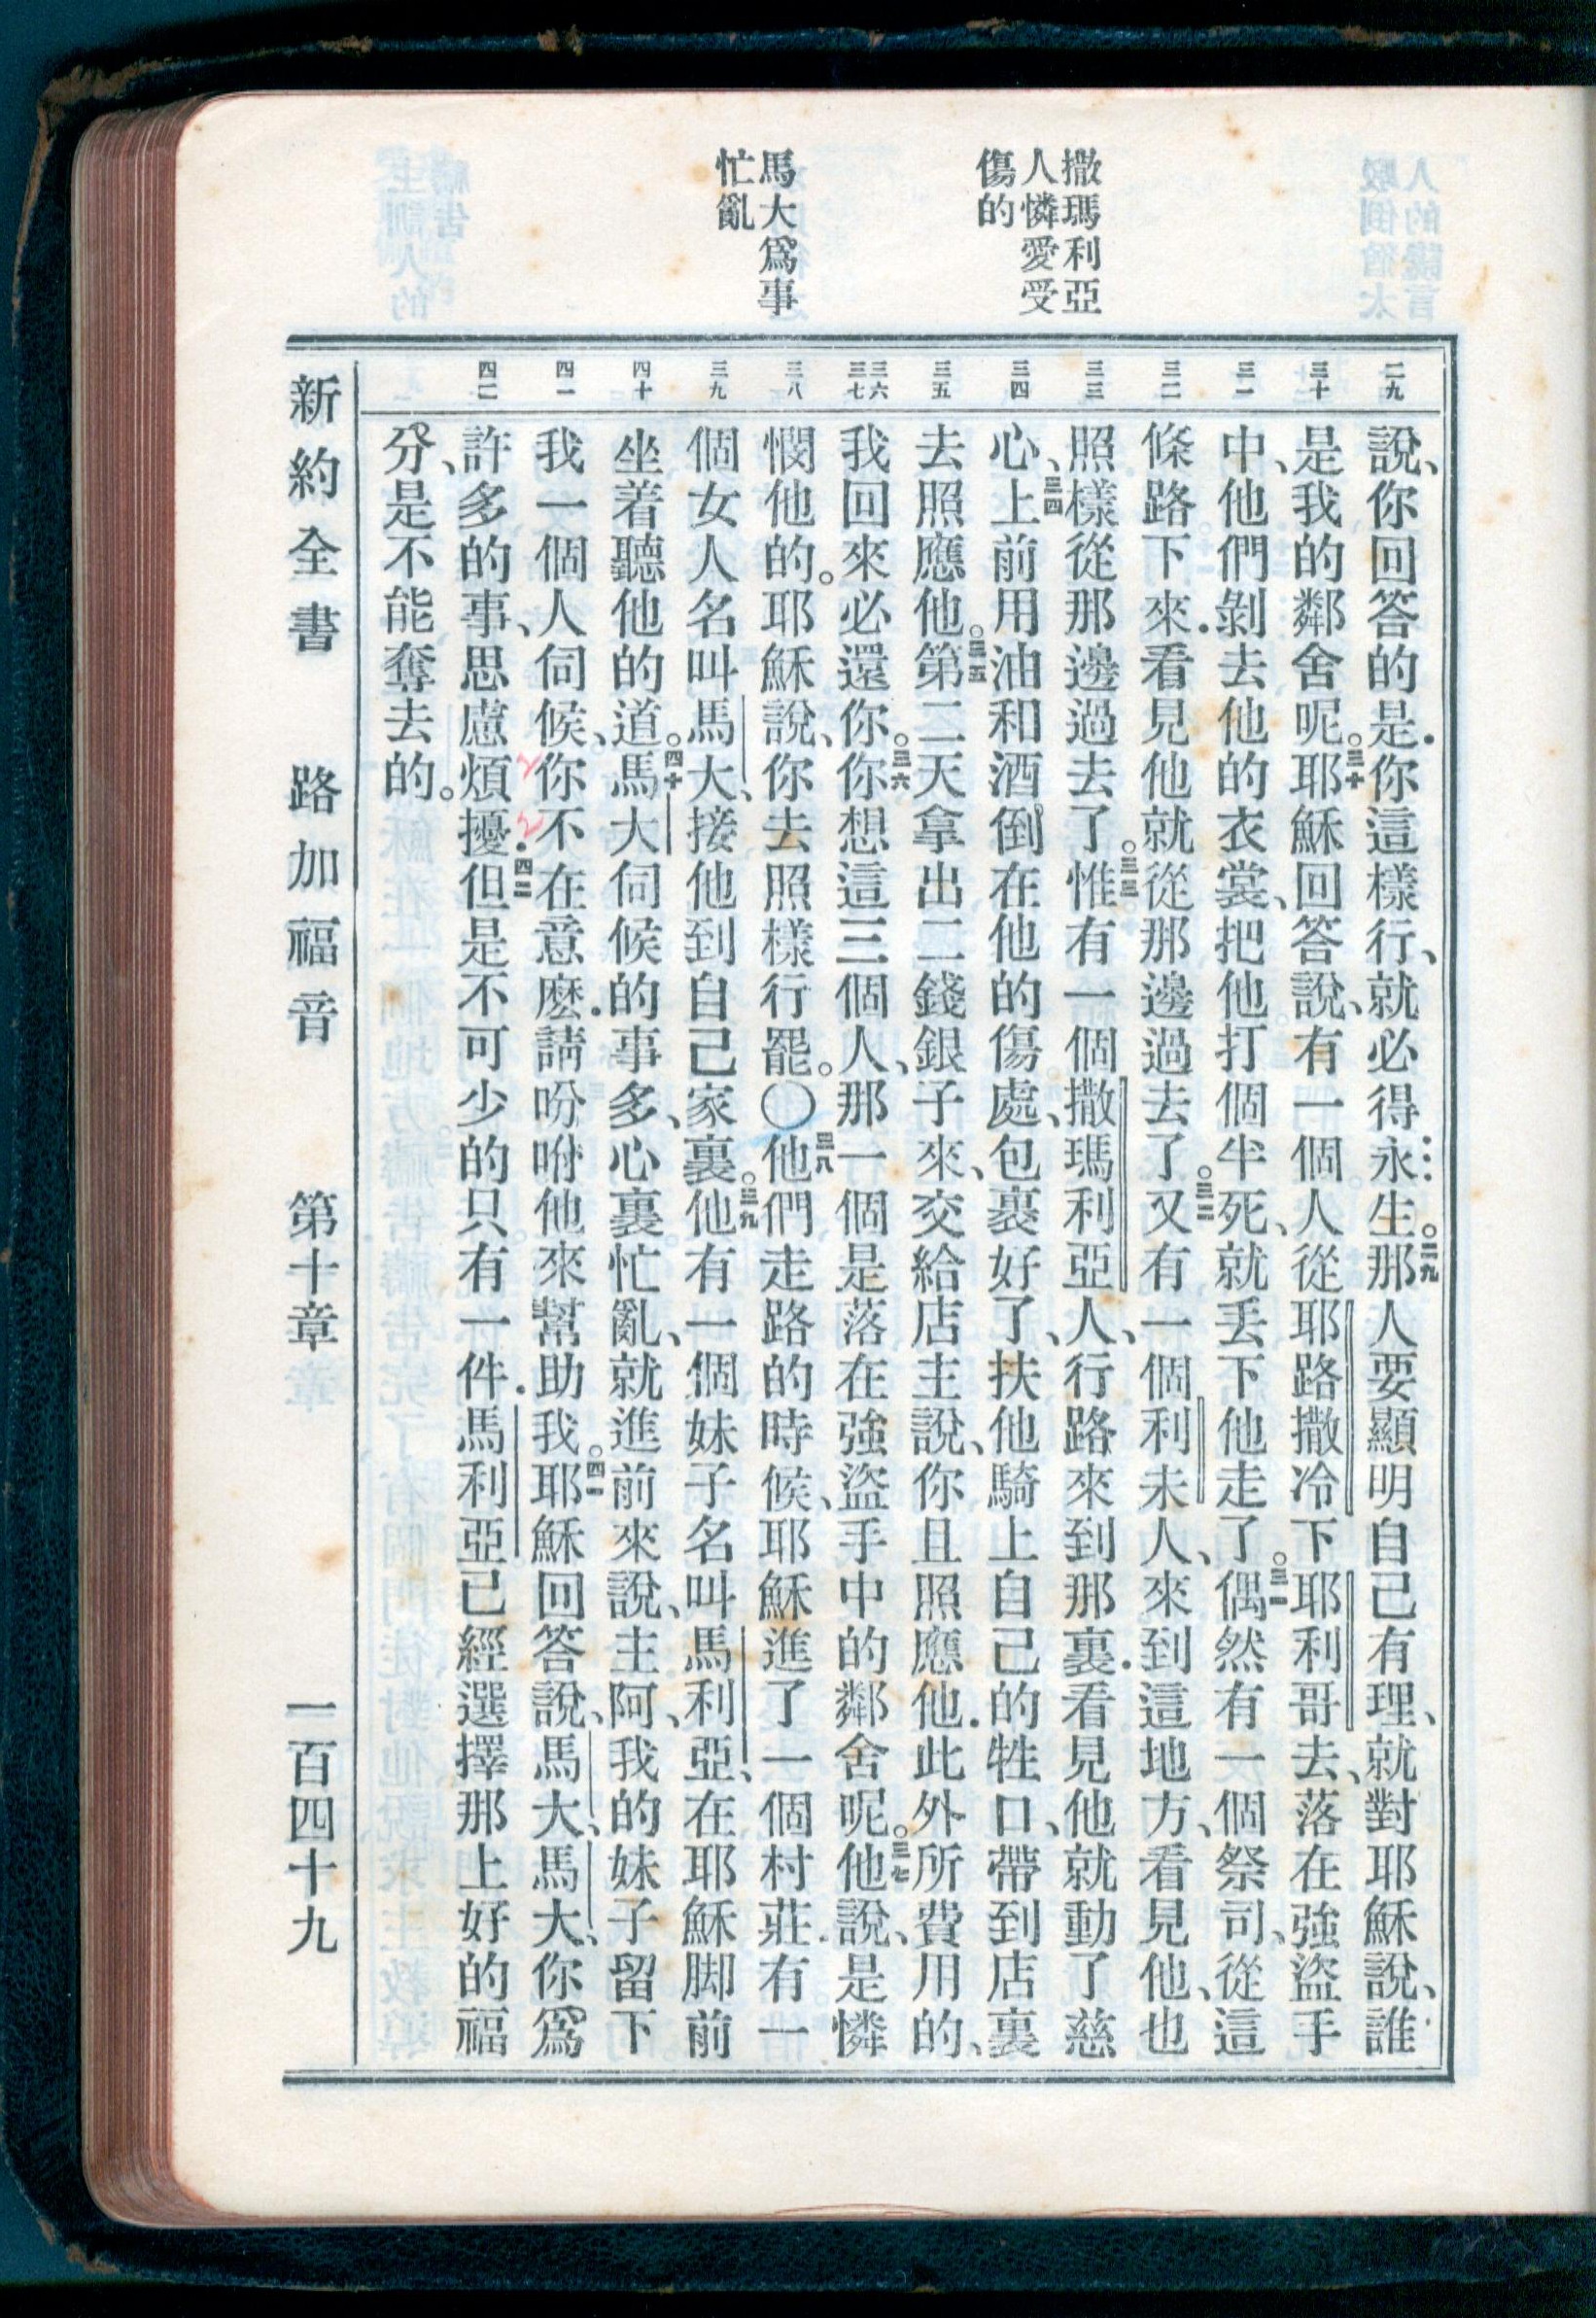 撒瑪利亞
人憐愛受
傷的
馬大爲事
忙亂
二九
三十
三一
三二
三三
三四
三五
三六
三七
三八
三九
四十
四一
四二
說、你回答的是.你這樣行、就必得永生。二九那人要顯明自己有理、就對耶穌說、誰
是我的鄰舍呢。三十耶穌回答說、有一個人從耶路撒冷下耶利哥去、落在強盜手
中、他們剝去他的衣裳、把他打個半死、就丟下他走了。三一偶然有一個祭司、從這
條路下來.看見他就從那邊過去了。三二又有一個利未人、來到這地方、看見他、也
照樣從那邊過去了。三三惟有一個撒瑪利亞人、行路來到那裏.看見他就動了慈
心、三四上前用油和酒倒在他的傷處、包裹好了、扶他騎上自己的牲口、帶到店裏
去照應他。三五第二天拿出二錢銀子來、交給店主說、你且照應他.此外所費用的、
我回來必還你。三六你想這三個人、那一個是落在強盜手中的鄰舍呢。三七他說、是憐
憫他的。耶穌說、你去照樣行罷。〇三八他們走路的時候、耶穌進了一個村莊.有一
個女人名叫馬大、接他到自己家裏。三九他有一個妹子名叫馬利亞、在耶穌脚前
坐着聽他的道。四十馬大伺候的事多、心裏忙亂、就進前來說、主阿、我的妹子留下
我一個人伺候、你不在意麼.請吩咐他來幫助我。四一耶穌回答說、馬大、馬大、你爲
許多的事、思慮煩擾.四二但是不可少的只有一件.馬利亞已經選擇那上好的福
分、是不能奪去的。
新約全書 路加福音 第十章 一百四十九